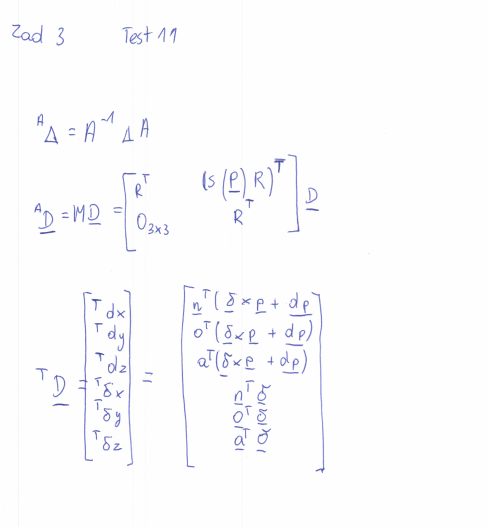 Zad 3 Test 11
ᴬΔ = A⁻¹ Δ A
ᴬD = MD = [ Rᵀ (S(p)R)ᵀ
O₃ₓ₃ Rᵀ ] D
ᵀD = [ ᵀdx
ᵀdy
ᵀdz
ᵀδx
ᵀδy
ᵀδz ] = [ nᵀ(δ × p + dp)
oᵀ(δ × p + dp)
aᵀ(δ × p + dp)
nᵀ δ
oᵀ δ
aᵀ δ ]